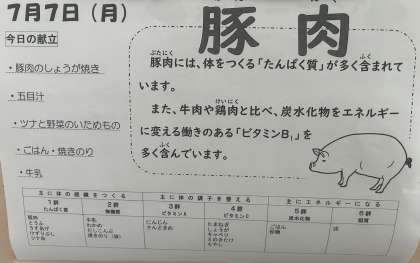 7月7日（月）
豚肉
今日の献立
・豚肉のしょうが焼き
・五目汁
・ツナと野菜のいためもの
・ごはん・焼きのり
・牛乳
豚肉には、体をつくる「たんぱく質」が多く含まれて
います。
また、牛肉や鶏肉と比べ、炭水化物をエネルギー
に変える働きのある「ビタミンB₁」を
多く含んでいます。
主に体の組織をつくる 主に体の調子を整える 主にエネルギーになる
1群 2群 3群 4群 5群 6群
たんぱく質 無機質 ビタミンA ビタミンC 炭水化物 脂質
豚肉 牛乳 にんじん たまねぎ ごはん 油
とうふ わかめ さんどまめ しょうが 砂糖
キャベツ
ツナ缶 もやし